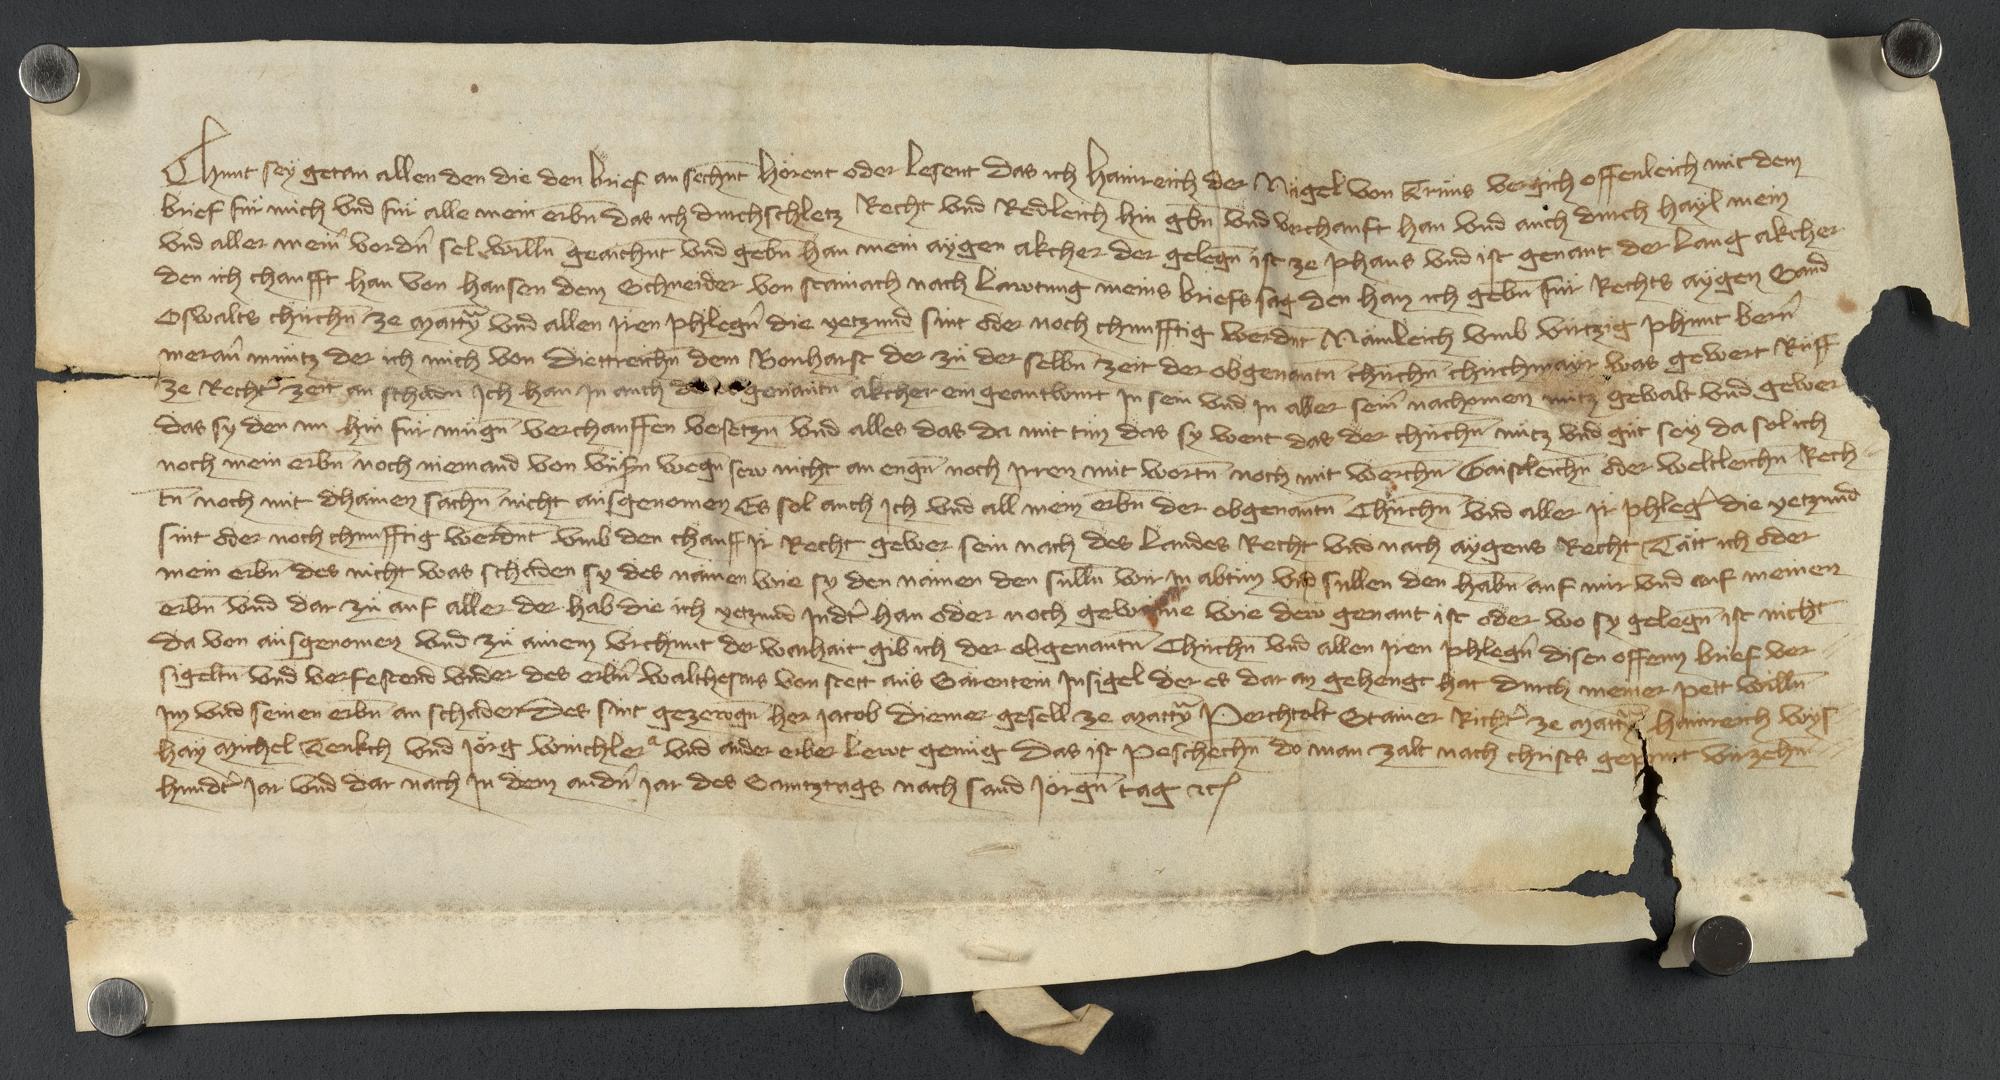 Chunt sey getan allen den die den brief an sechent hörent oder lesent das ich Hainreich der Nägel von Trüns vergich offenleich mit dem
brief für mich vnd für alle mein erbn̄ das ich durchschletz Recht vnd Redleich hin gebn̄ vnd verchauft han vnd auch durch hayl mein
vnd aller mein̄ vordn̄ sel willn̄ geaichnt vnd gebn̄ han mein aygen akcher der gelegn̄ ist ze phaus vnd ist genant der lang akcher
den ich chaufft han von hansen dem Schneider von stainach nach lawtung meins briefs sag den han ich gebn̄ für Rechts aygen Sand
Oswalts chirchn̄ ze Mattr̄ay vnd allen iren phlegn̄ die yetzund sint oder noch chunfftig werdnt Nämleich vmb virtzig phunt bern̄
meran̄ müntz der ich mich von Diettreichn̄ dem Bonharst der zü der selbn̄ zeit der obgenantn̄ chirchn̄ chirchmayr was gewert Rüff
ze Recht̄ zeit an schadn̄ Ich han in auch genantn̄ akcher ein geantburt in sein vnd in aller sein̄ nachomen nutz gewalt vnd gewer
das sy den nu hin für mügn̄ verchauffen versetzn̄ vnd alles das da mit tun das sy went das der chirchn̄ nütz vnd güt sey da sol ich
noch mein erbn̄ noch niemand von vnsn̄ wegn̄ sew nicht an engn̄ noch irren mit wortn̄ noch mit werchn̄ Gaistleichn̄ oder weltleichn̄ Rech-
tn̄ noch mit dhainen sachn̄ nicht ausgenomen Es sol auch ich vnd all mein erbn̄ der obgenantn̄ Chirchn̄ vnd aller ir phleḡ die yetzund
sint oder noch chunfftig werdnt vmb den chauff ir Recht gewer sein nach des landes Recht vnd nach aygens Recht Tätt ich oder
mein erbn̄ des nicht was schäden sy des nämen wie sy den nämen den sülln̄ wir in abtun vnd sullen den habn̄ auf mir vnd auf meinen
erbn̄ vnd dar zü auf aller der hab die ich yetzund indt̄ han oder noch gewinne wie dew genant ist oder wo sy gelegn̄ ist nicht
da von ausgenomen vnd zü ainem vrchunt der warhait gib ich der obgenantn̄ Chirchn̄ vnd allen iren phlegn̄ disen offenn brief ver-
sigeltn̄ vnd verfestend vnder des erbn̄ walthesars von stett aus Särentein insigel der es dar an gehengt hat durch meiner pett willn̄
im vnd seinen erbn̄ an schaden Des sint gezewgn̄ her Jacob Diemer gesell ze Mattr̄ay Perchtolt Stainer Richt̄ ze Mattr̄ay hainreich wys
hay Michel Tenkch vnd Jörg winchler vnd ander erber lewt genüg Das ist peschechn̄ do man zalt nach christs gepurt virzehn-
hundt̄ Jar vnd dar nach in dem andn̄ Jar des Samtztags nach sand Jörgn̄ tag etc